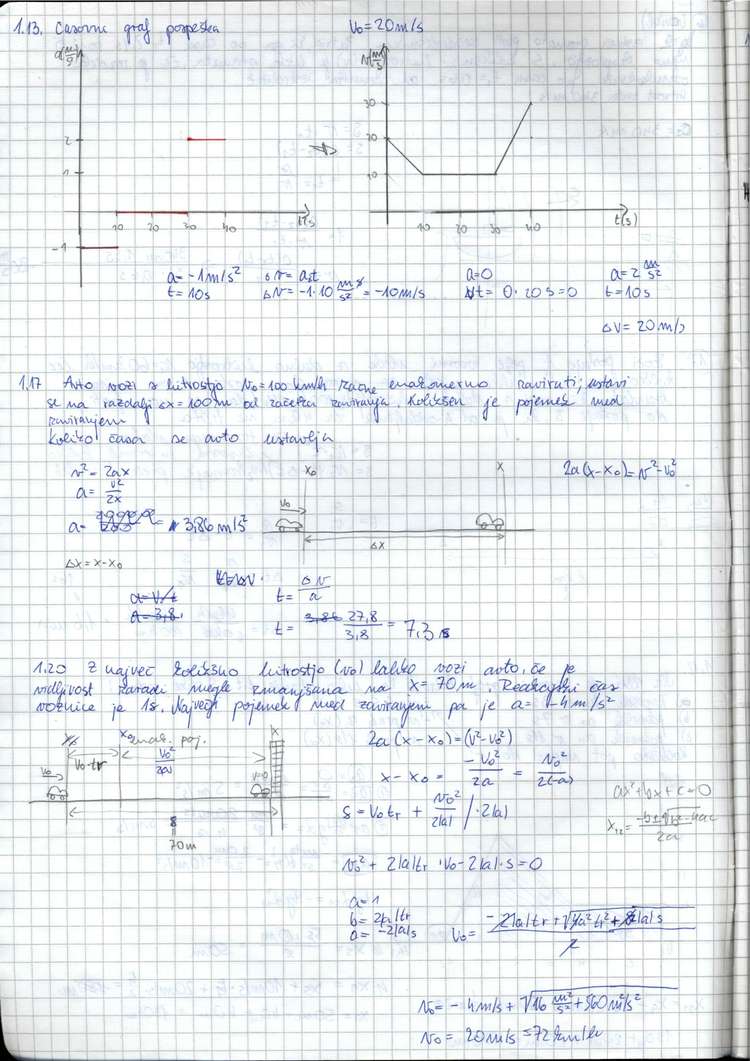 1.13. Časovni graf pospeška v₀ = 20 m/s
a(m/s²)
2
1
-1
10 20 30 40 t(s)
v(m/s)
30
20
10
10 20 30 40 t(s)
a = -1 m/s² Δv = a·t a = 0 a = 2 m/s²
t = 10s Δv = -1·10 m s/s² = -10 m/s t = 0·20 s = 0 t = 10s
Δv = 20 m/s
1.17 Avto vozi s hitrostjo v₀ = 100 km/h začne enakomerno zavirati; ustavi
se na razdalji Δx = 100 m od začetka zaviranja. Kolikšen je pojemek med
zaviranjem
Koliko časa se avto ustavlja
v² = 2ax x₀ x 2a(x-x₀) = v² - v₀²
a = v²/2x
v₀
a = = 3,86 m/s²
Δx
Δx = x - x₀
t = Δv/a
a = v/t
a = 3,8
t = 27,8/3,8 = 7,3 s
1.20 Z največ kolikšno hitrostjo (v₀) lahko vozi avto, če je
vidljivost zaradi megle zmanjšana na x = 70 m. Reakcijski čas
voznice je 1s. Največji pojemek med zaviranjem pa je a = -4 m/s²
x₀ enak. poj. x
v₀·tr v₀²/2|a|
v₀ v=0
s
70m
2a(x - x₀) = (v² - v₀²)
x - x₀ = -v₀²/2a = v₀²/2(-a)
s = v₀tr + v₀²/2|a| /·2|a|
ax² + bx + c = 0
x₁₂ = -b±√b²-4ac/2a
v₀² + 2|a|tr·v₀ - 2|a|·s = 0
a = 1
b = 2|a|tr
a = -2|a|s
v₀ = -2|a|tr + √4a²tr² + 8|a|s/2
v₀ = -4 m/s + √16 m²/s² + 560 m²/s²
v₀ = 20 m/s = 72 km/h